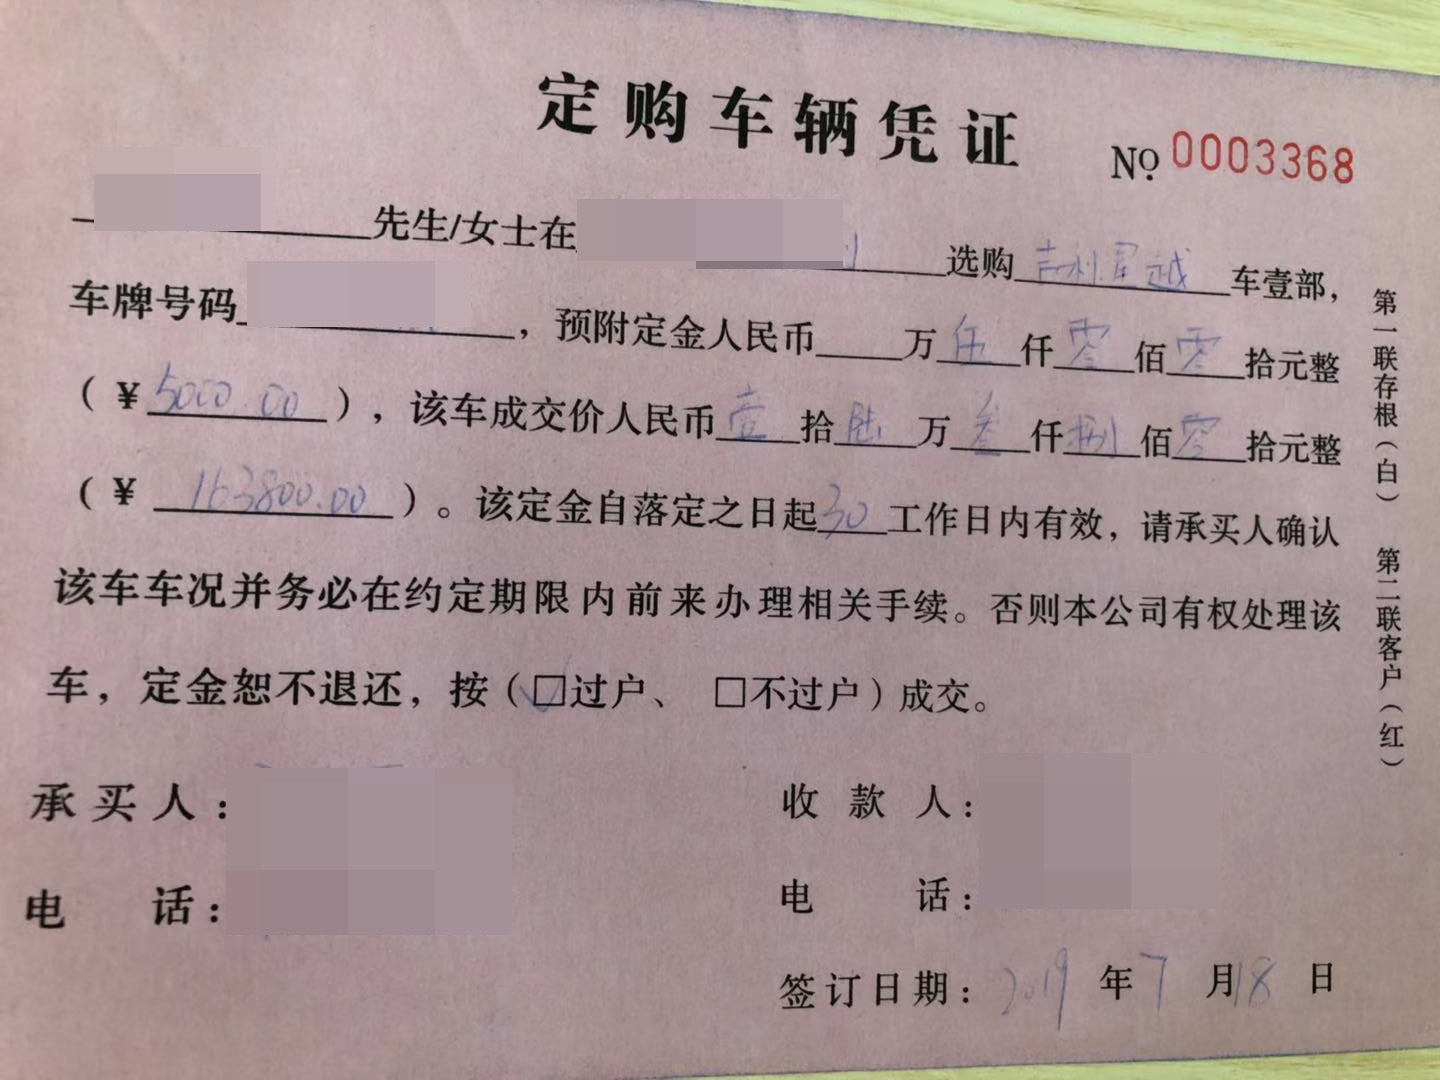 定购车辆凭证
№ 0003368
先生/女士在 选购 吉利星越 车壹部，
车牌号码 ，预附定金人民币 万 伍 仟 零 佰 零 拾元整
（¥ 5000.00 ），该车成交价人民币 壹 拾 陆 万 叁 仟 捌 佰 零 拾元整
（¥ 163800.00 ）。该定金自落定之日起 30 工作日内有效，请承买人确认
该车车况并务必在约定期限内前来办理相关手续。否则本公司有权处理该
车，定金恕不退还，按（☑过户、 □不过户）成交。
承买人： 收款人：
电 话： 电 话：
签订日期： 2019 年 7 月 18 日
第一联存根（白） 第二联客户（红）